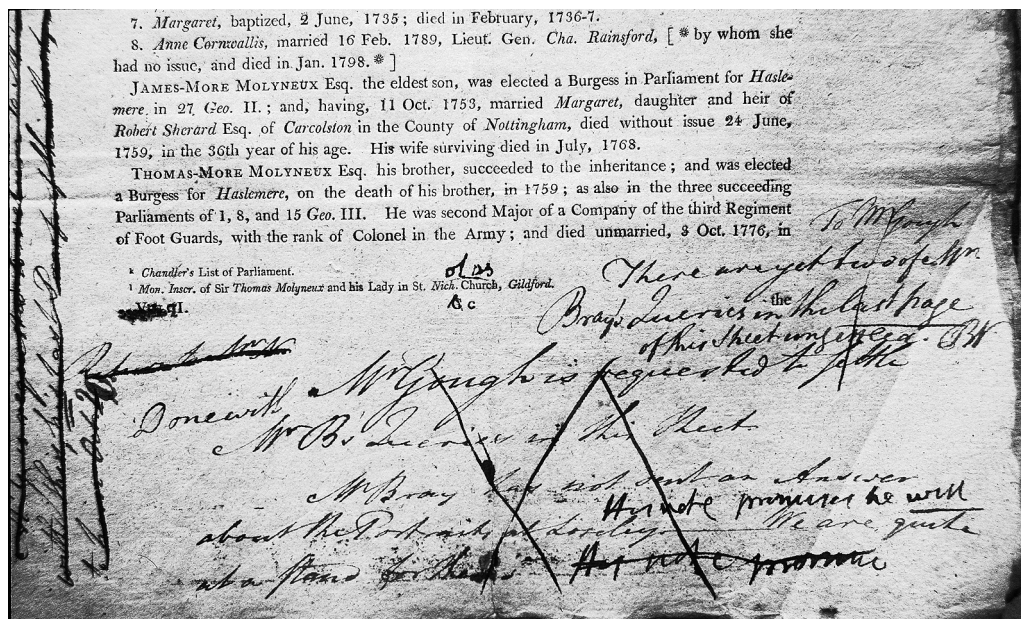 7. Margaret, baptized, 2 June, 1735; died in February, 1736-7.
8. Anne Cornwallis, married 16 Feb. 1789, Lieut. Gen. Cha. Rainsford, [ * by whom she
had no issue, and died in Jan. 1798. * ]
JAMES-MORE MOLYNEUX Esq. the eldest son, was elected a Burgess in Parliament for Hasle-
mere in 27 Geo. II.; and, having, 11 Oct. 1753, married Margaret, daughter and heir of
Robert Sherard Esq. of Carcolston in the County of Nottingham, died without issue 24 June,
1759, in the 36th year of his age. His wife surviving died in July, 1768.
THOMAS-MORE MOLYNEUX Esq. his brother, succeeded to the inheritance; and was elected
a Burgess for Haslemere, on the death of his brother, in 1759; as also in the three succeeding
Parliaments of 1, 8, and 15 Geo. III. He was second Major of a Company of the third Regiment
of Foot Guards, with the rank of Colonel in the Army; and died unmarried, 3 Oct. 1776, in
k Chandler's List of Parliament.
l Mon. Inscr. of Sir Thomas Molyneux and his Lady in St. Nich. Church, Gildford.
Vol. II.
c
the
To Mr Gough
There are yet two of Mr.
Bray's Queries in the last page
of this Sheet
Mr Gough is requested to settle
Mr B's Queries in this Sheet
Done will
Mr Bray has not sent an Answer
about the Portraits at Loseley. We are quite
at a stand for them
His note promises he will
His note promise